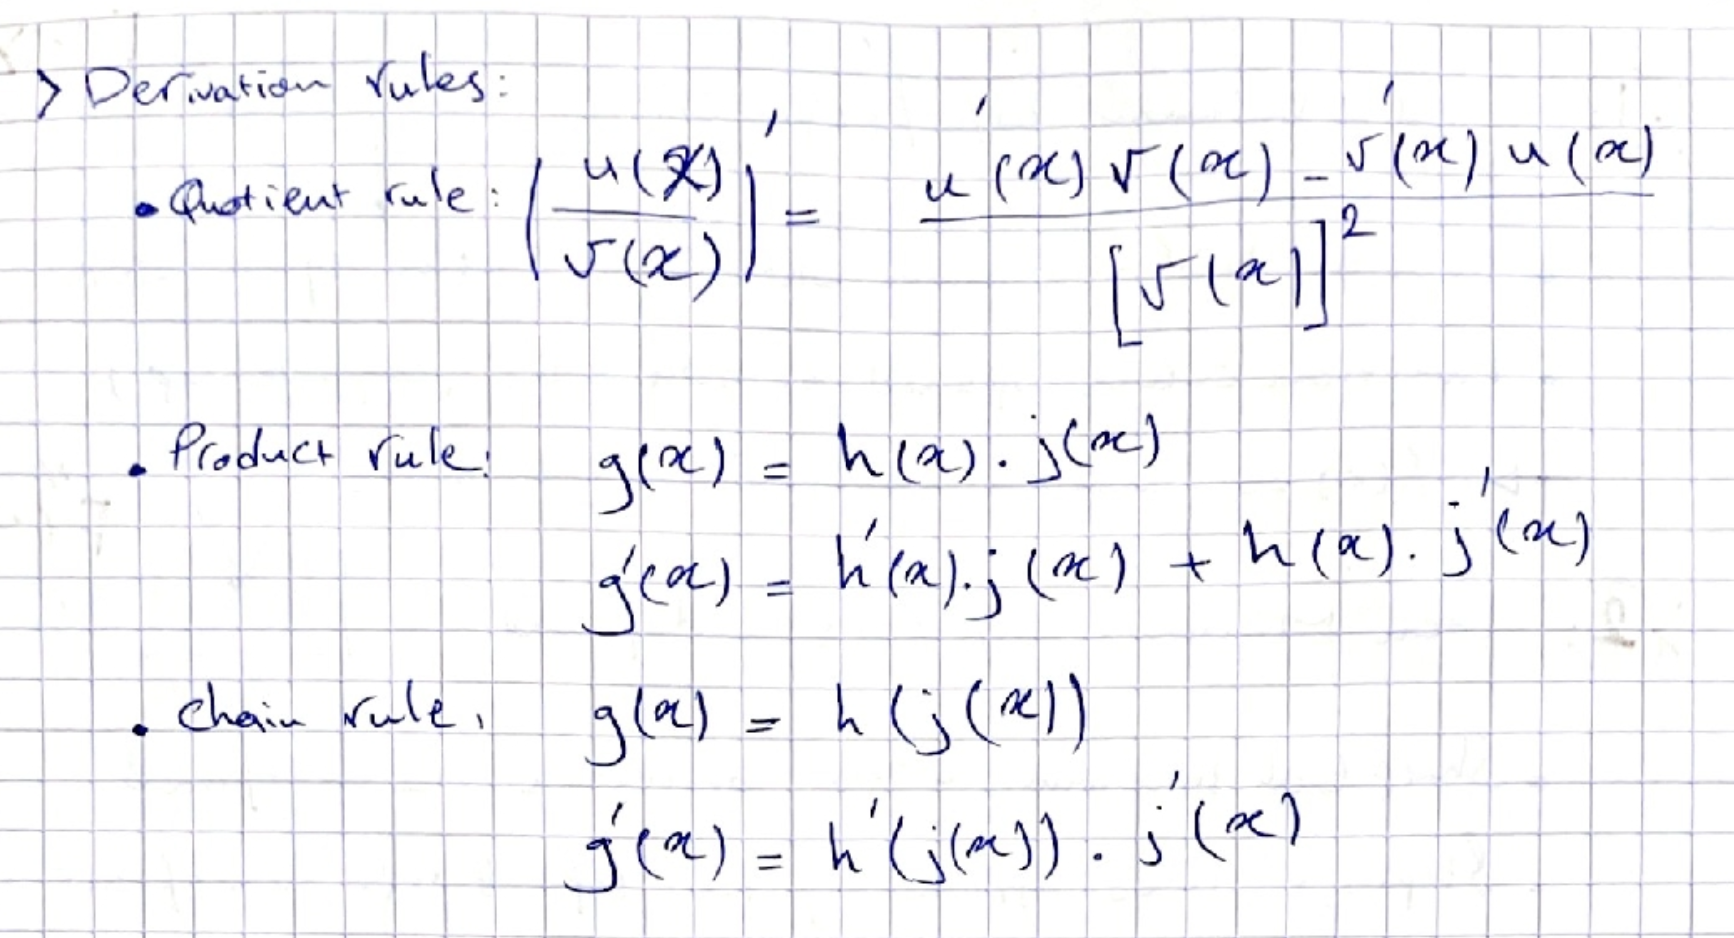 > Derivation rules:
• Quotient rule: (u(x)/v(x))' = (u'(x) v(x) - v'(x) u(x))/[v(x)]²
• Product rule: g(x) = h(x) . j(x)
g'(x) = h'(x) . j(x) + h(x) . j'(x)
• Chain rule, g(x) = h(j(x))
g'(x) = h'(j(x)) . j'(x)